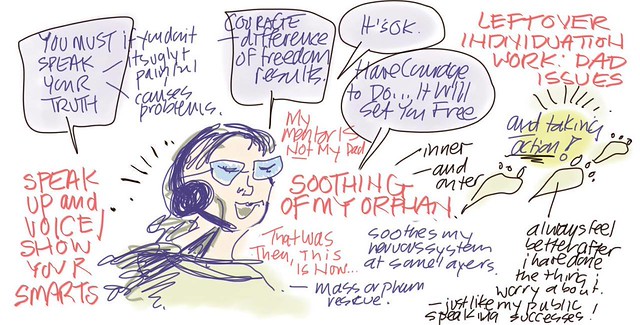 YOU MUST
SPEAK
YOUR
TRUTH
if you don't
its ugly &
painful
- causes
problems.
COURAGE
- difference
of freedom
results.
It's OK.
Have Courage
to Do... It Will
Set You Free
LEFTOVER
INDIVIDUATION
WORK: DAD
ISSUES
and taking
action!
My
Mentor IS
Not My Dad
SPEAK
UP and
VOICE/
SHOW
YOUR
SMARTS
SOOTHING
OF MY ORPHAN
inner
and
outer
That was
Then, This
IS Now...
- mass orphan
rescue!
soothes my
nervous system
at some layers.
always feel
better after
i have done
the thing i
worry about.
- just like my public
speaking successes!